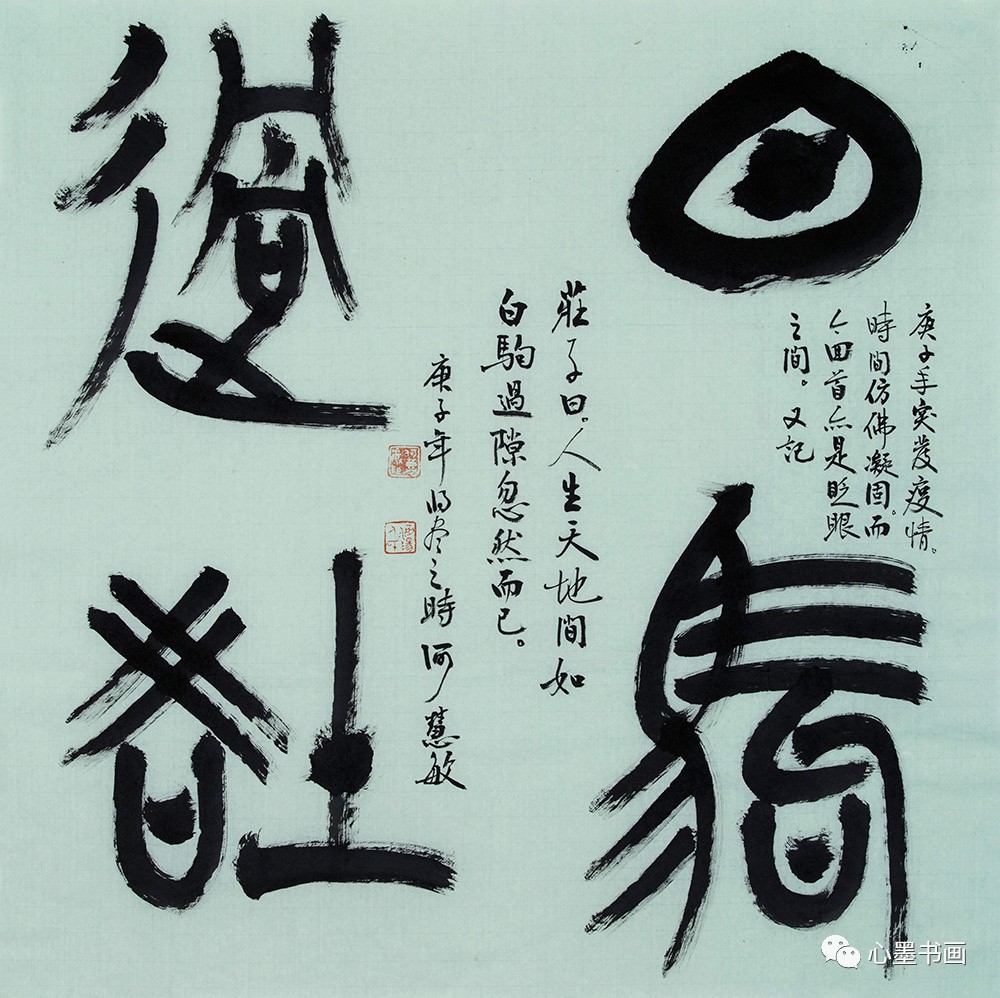 白駒
過
庚子年突發疫情。
時間仿佛凝固。而
今回首亦是眨眼
之間。又記
莊子曰。人生天地間如
白駒過隙忽然而已。
庚子年将尽之時 何慧敏
心墨书画